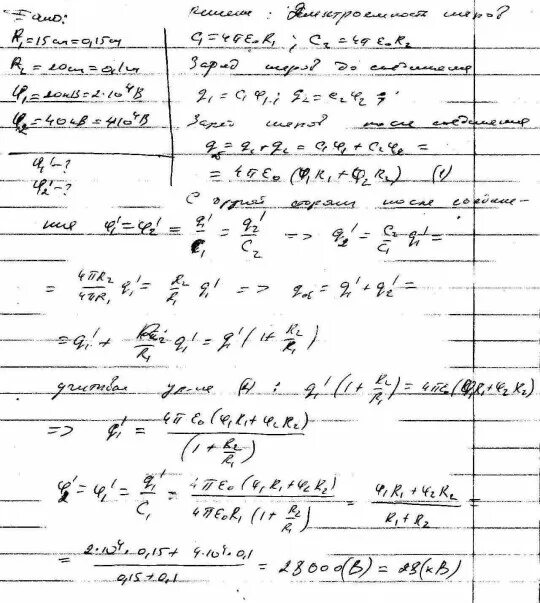 Дано:
R₁=15см=0,15м
R₂=10см=0,1м
φ₁=20кВ=2·10⁴В
φ₂=40кВ=4·10⁴В
φ₁'-?
φ₂'-?
Решение: Электроемкость шаров
C₁=4πε₀R₁; C₂=4πε₀R₂
Заряд шаров до соединения
q₁=C₁φ₁; q₂=C₂φ₂
Заряд шаров после соединения
qоб=q₁+q₂=C₁φ₁+C₂φ₂=
=4πε₀(φ₁R₁+φ₂R₂) (1)
С другой стороны после соедине-
ния φ₁'=φ₂'=q₁'/C₁=q₂'/C₂ => q₂'=C₂/C₁ q₁'=
=4πR₂/4πR₁ q₁'=R₂/R₁ q₁' => qоб=q₁'+q₂'=
=q₁'+R₂/R₁ q₁'=q₁'(1+R₂/R₁)
учитывая ур-ие (1): q₁'(1+R₂/R₁)=4πε₀(φ₁R₁+φ₂R₂)
=> q₁'=4πε₀(φ₁R₁+φ₂R₂)/(1+R₂/R₁)
φ₂'=φ₁'=q₁'/C₁=4πε₀(φ₁R₁+φ₂R₂)/4πε₀R₁(1+R₂/R₁)=φ₁R₁+φ₂R₂/R₁+R₂=
=2·10⁴·0,15+4·10⁴·0,1/0,15+0,1=28000(В)=28(кВ)